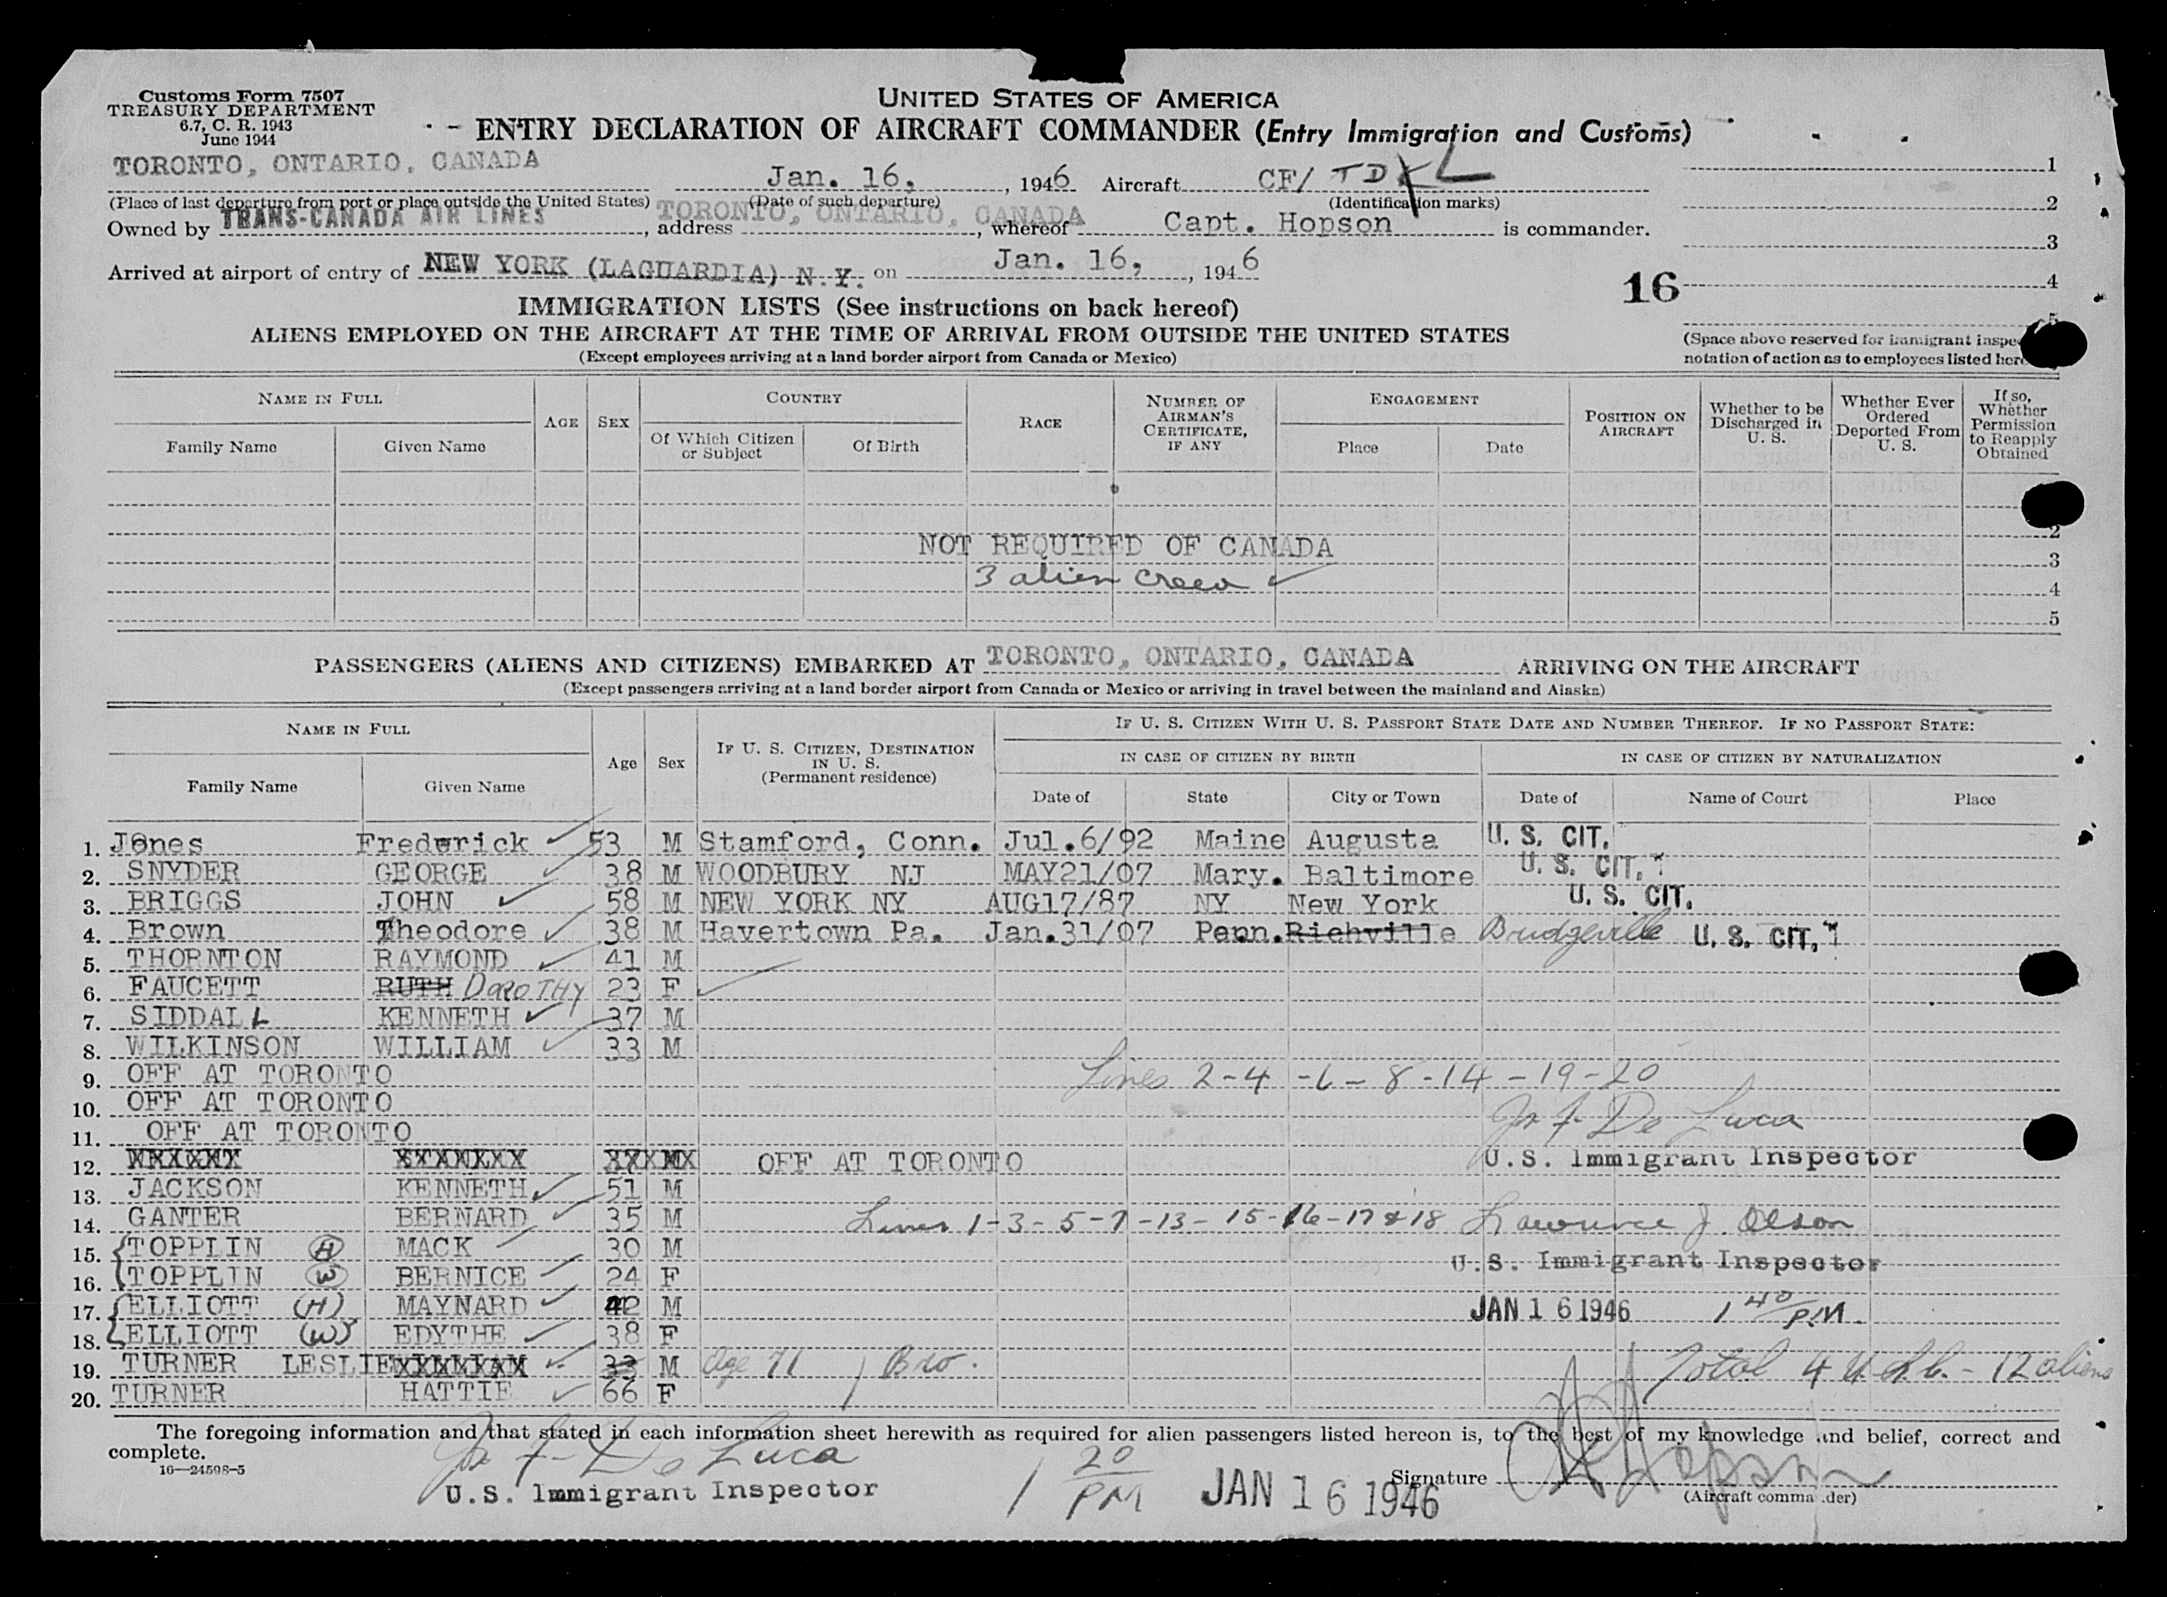 Customs Form 7507
TREASURY DEPARTMENT
6.7, C. R. 1943
June 1944
UNITED STATES OF AMERICA
ENTRY DECLARATION OF AIRCRAFT COMMANDER (Entry Immigration and Customs)
TORONTO, ONTARIO, CANADA Jan. 16, , 1946 Aircraft CF/ TD L 1
(Place of last departure from port or place outside the United States) (Date of such departure) (Identification marks) 2
Owned by TRANS-CANADA AIR LINES , address TORONTO, ONTARIO, CANADA , whereof Capt. Hopson is commander.
3
Arrived at airport of entry of NEW YORK (LAGUARDIA) N.Y. on Jan. 16, , 1946
16 4
5
IMMIGRATION LISTS (See instructions on back hereof)
ALIENS EMPLOYED ON THE AIRCRAFT AT THE TIME OF ARRIVAL FROM OUTSIDE THE UNITED STATES
(Except employees arriving at a land border airport from Canada or Mexico)
(Space above reserved for immigrant
notation of action as to employees listed
NAME IN FULL AGE SEX COUNTRY RACE NUMBER OF AIRMAN'S CERTIFICATE, IF ANY ENGAGEMENT POSITION ON AIRCRAFT Whether to be Discharged in U. S. Whether Ever Ordered Deported From U. S. If so, Whether Permission to Reapply Obtained
Family Name Given Name Of Which Citizen or Subject Of Birth Place Date
2
NOT REQUIRED OF CANADA
3
3 alien crew ✓
4
5
PASSENGERS (ALIENS AND CITIZENS) EMBARKED AT TORONTO, ONTARIO, CANADA ARRIVING ON THE AIRCRAFT
(Except passengers arriving at a land border airport from Canada or Mexico or arriving in travel between the mainland and Alaska)
NAME IN FULL Age Sex IF U. S. CITIZEN, DESTINATION IN U. S. (Permanent residence) IF U. S. CITIZEN WITH U. S. PASSPORT STATE DATE AND NUMBER THEREOF. IF NO PASSPORT STATE:
IN CASE OF CITIZEN BY BIRTH IN CASE OF CITIZEN BY NATURALIZATION
Family Name Given Name Date of State City or Town Date of Name of Court Place
1. Jones Frederick ✓ 53 M Stamford, Conn. Jul.6/92 Maine Augusta U. S. CIT.
2. SNYDER GEORGE ✓ 38 M WOODBURY NJ MAY21/07 Mary. Baltimore U. S. CIT.
3. BRIGGS JOHN ✓ 58 M NEW YORK NY AUG17/87 NY New York U. S. CIT.
4. Brown Theodore ✓ 38 M Havertown Pa. Jan.31/07 Penn. Richville Bridgeville U. S. CIT.
5. THORNTON RAYMOND ✓ 41 M
6. FAUCETT RUTH DOROTHY 23 F ✓
7. SIDDALL KENNETH ✓ 37 M
8. WILKINSON WILLIAM ✓ 33 M
9. OFF AT TORONTO Lines 2-4-6-8-14-19-20
10. OFF AT TORONTO
Jr F De Luca
11. OFF AT TORONTO
12. OFF AT TORONTO U.S. Immigrant Inspector
13. JACKSON KENNETH ✓ 51 M
14. GANTER BERNARD ✓ 35 M Lines 1-3-5-7-13-15-16-17 & 18 Lawrence J. Olson
15. TOPPLIN (H) MACK ✓ 30 M
U.S. Immigrant Inspector
16. TOPPLIN (W) BERNICE ✓ 24 F
17. ELLIOTT (H) MAYNARD ✓ 42 M JAN 16 1946 1 40 P.M.
18. ELLIOTT (W) EDYTHE ✓ 38 F
19. TURNER LESLIE ✓ 33 M age 71 Bro. Total 4 U.S.C. - 12 aliens
20. TURNER HATTIE ✓ 66 F
The foregoing information and that stated in each information sheet herewith as required for alien passengers listed hereon is, to the best of my knowledge and belief, correct and
complete.
16—24598-5
Jr F De Luca
U.S. Immigrant Inspector
1 20 PM JAN 16 1946
Signature Hopson
(Aircraft commander)